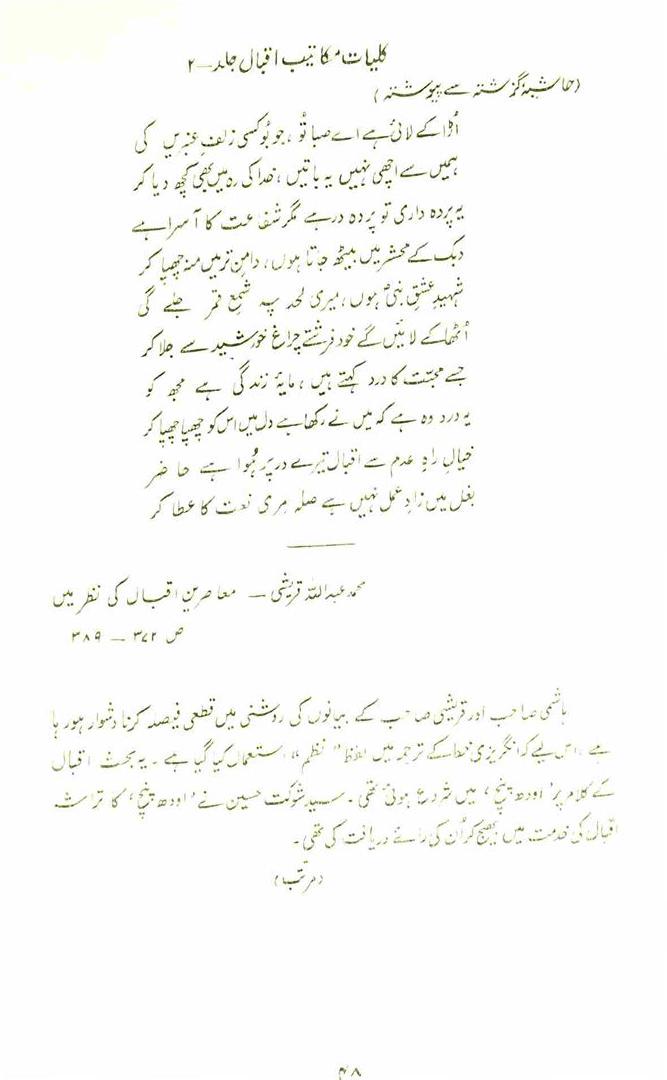 کلیات مکاتیب اقبال جلد ۔ ۲
(حاشیۂ گزشتہ سے پیوستہ)
اُڑا کے لائی ہے اے صبا تُو، جو بُو کسی زلفِ عنبریں کی
ہمیں سے اچھی نہیں یہ باتیں، خدا کی رہ میں بھی کچھ دیا کر
یہ پردہ داری تو پردہ در ہے مگر شفاعت کا آسرا ہے
دبک کے محشر میں بیٹھ جاتا ہوں، دامنِ تر میں منہ چھپا کر
شہیدِ عشقِ نبیؐ ہوں، میری لحد پہ شمعِ قمر جلے گی
اُٹھا کے لائیں گے خود فرشتے چراغ خورشید سے جلا کر
جسے محبّت کا درد کہتے ہیں، مایۂ زندگی ہے مجھ کو
یہ درد وہ ہے کہ میں نے رکھا ہے دل میں اس کو چھپا چھپا کر
خیالِ راہِ عدم سے اقبال تیرے در پر ہُوا ہے حاضر
بغل میں زادِ عمل نہیں ہے صلہ مری نعت کا عطا کر
محمد عبداللہ قریشی ۔ معاصرین اقبال کی نظر میں
ص ۳۷۲ ۔ ۳۸۹
ہاشمی صاحب اور قریشی صاحب کے بیانوں کی روشنی میں قطعی فیصد کرنا دشوار ہو رہا
ہے، اس لیے کہ انگریزی خط کے ترجمہ میں لفظ "نظم" استعمال کیا گیا ہے۔ یہ بحث اقبال
کے کلام پر 'اودھ پنچ' میں شروع ہوئی تھی۔ سید شوکت حسین نے 'اودھ پنچ' کا تراشہ
اقبال کی خدمت میں بھیج کر اُن کی رائے دریافت کی تھی۔
(مرتب)
۴۸